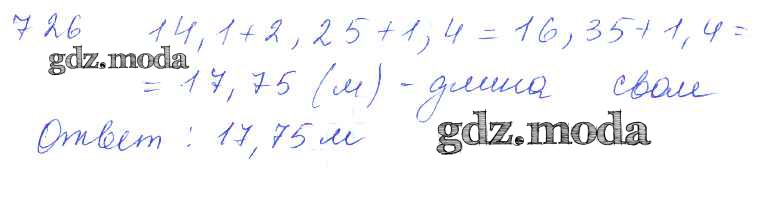 726 14,1+2,25+1,4=16,35+1,4=
gdz.moda
=17,75 (м) - длина сваи
Ответ: 17,75 м
gdz.moda